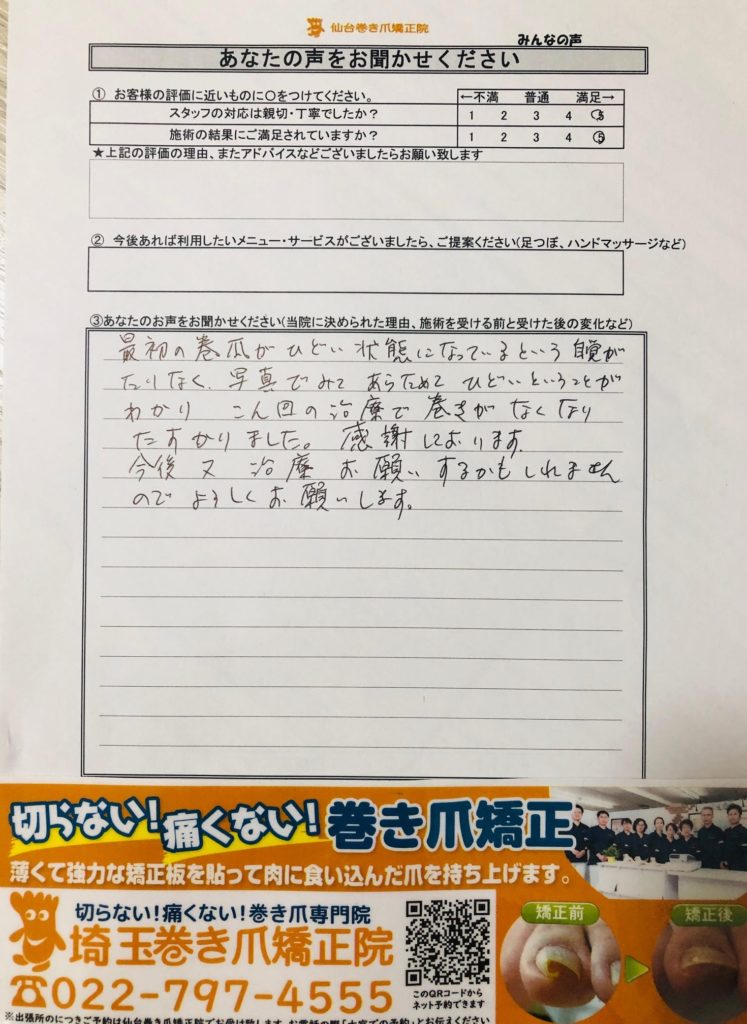 仙台巻き爪矯正院
みんなの声
あなたの声をお聞かせください
① お客様の評価に近いものに○をつけてください。 ←不満 普通 満足→
スタッフの対応は親切・丁寧でしたか? 1 2 3 4 5
施術の結果にご満足されていますか? 1 2 3 4 5
★上記の評価の理由、またアドバイスなどございましたらお願い致します
② 今後あれば利用したいメニュー・サービスがございましたら、ご提案ください(足つぼ、ハンドマッサージなど)
③あなたのお声をお聞かせください(当院に決められた理由、施術を受ける前と受けた後の変化など)
最初の巻爪がひどい状態になっているという自覚が
たりなく、写真でみて あらためて ひどいということが
わかり こん回の治療で巻きがなくなり
たすかりました。感謝しております。
今後又治療お願いするかもしれません
のでよろしくお願いします。
切らない!痛くない!巻き爪矯正
薄くて強力な矯正板を貼って肉に食い込んだ爪を持ち上げます。
切らない!痛くない!巻き爪専門院
埼玉巻き爪矯正院
☎022-797-4555
このQRコードから
ネット予約できます
矯正前
矯正後
※出張所のにつきご予約は仙台巻き爪矯正院でお受け致します。お電話の際「大宮での予約」とお伝えください